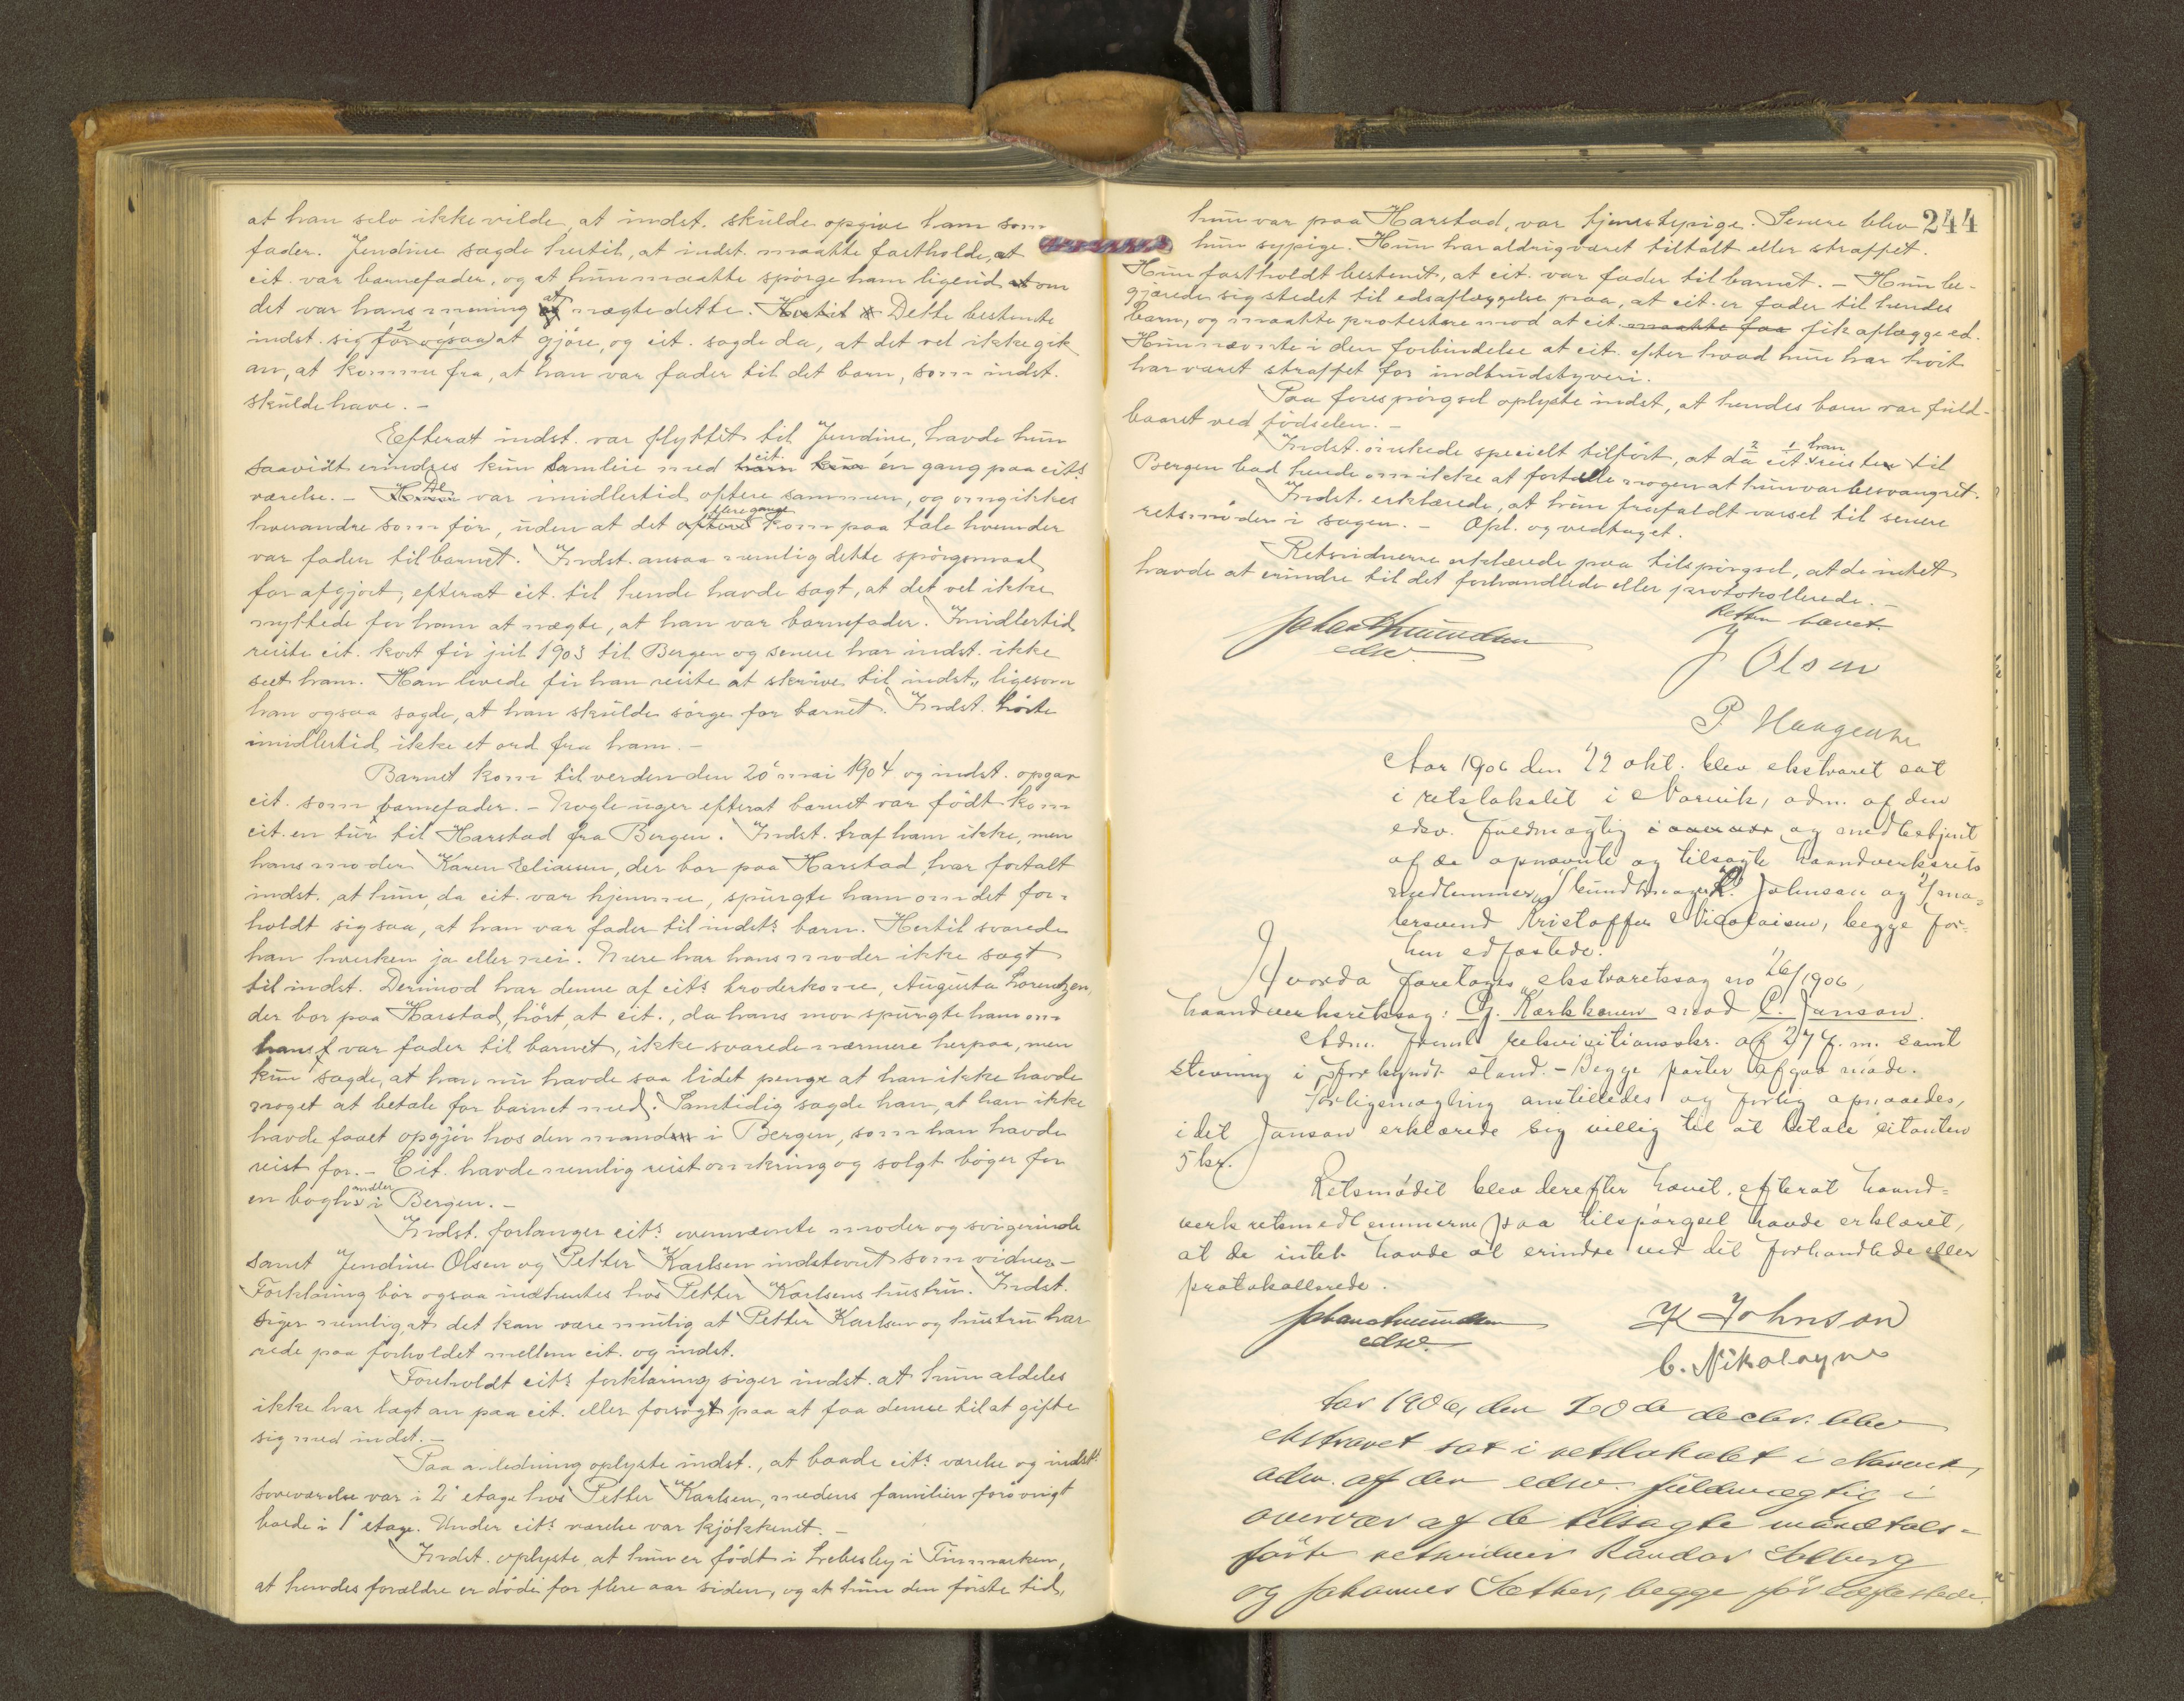 at han selv ikke vilde, at indst. skulde opgive ham som
fader. Jendine sagde hertil, at indst. maatte fastholde, at
cit. var barnefader, og at hun maatte spørge ham ligeud om
det var hans mening at nægte dette. Dette bestemte
indst. sig også for at gjøre, og cit. sagde da, at det vel ikke gik
an, at komme fra, at han var fader til det barn, som indst.
skulde have. –
Efterat indst. var flyttet til Jendine, havde hun
saavidt erindres kun samleie med cit. én gang paa cits
værelse. – De var imidlertid oftere sammen, og omgikkes
hverandre som før, uden at det flere gange kom paa tale hvem der
var fader til barnet. Indst. ansaa nemlig dette spørgsmaal
for afgjort, efterat cit. til hende havde sagt, at det vel ikke
nyttede for ham at nægte, at han var barnefader. Imidlertid
reiste cit. kort før jul 1903 til Bergen og senere har indst. ikke
seet ham. Han lovede før han reiste at skrive til indst., ligesom
han ogsaa sagde, at han skulde sørge for barnet. Indst. hørte
imidlertid ikke et ord fra ham. –
Barnet kom til verden den 20 mai 1904 og indst. opgav
cit. som barnefader. – Nogle uger efterat barnet var født kom
cit. en tur til Harstad fra Bergen. Indst. traf ham ikke, men
hans moder Karen Eliassen, der bor paa Harstad, har fortalt
indst. at hun, da cit. var hjemme, spurgte ham om det for-
holdt sig saa, at han var fader til indsts barn. Hertil svarede
han hverken ja eller nei. Mere har hans moder ikke sagt
til indst. Derimod har denne af cits broderkone, Augusta Lorentzen,
der bor paa Harstad, hørt, at cit., da hans mor spurgte ham om
han var fader til barnet, ikke svarede nærmere herpaa, men
kun sagde, at han nu havde saa lidet penge at han ikke havde
noget at betale for barnet med. Samtidig sagde han, at han ikke
havde faaet opgjør hos den mand i Bergen, som han havde
reist for. – Cit. havde nemlig reist omkring og solgt bøger for
en boghandler i Bergen. –
Indst. forlanger cits ovennævnte moder og svigerinde
samt Jendine Olsen og Petter Karlsen indstevnet som vidner –
Forklaring bør ogsaa indhentes hos Petter Karlsens hustru. Indst.
siger nemlig, at det kan være mulig at Petter Karlsen og hustru har
rede paa forholdet mellem cit. og indst.
Foreholdt cits forklaring siger indst. at hun aldeles
ikke har lagt an paa cit. eller forsøgt paa at faa denne til at gifte
sig med indst. –
Paa anledning oplyste indst., at baade cits værelse og indsts
soveværelse var i 2 etage hos Petter Karlsen, medens familien forøvrigt
boede i 1 etage. Under cits værelse var kjøkkenet. –
Indst. oplyste, at hun er født i Lebesby i Finmarken,
at hendes forældre er døde for flere aar siden, og at hun den første tid,
244
hun var paa Harstad, var tjenestepige. Senere blev
hun sypige. Hun har aldrig været tiltalt eller straffet.
Hun fastholdt bestemt, at cit. var fader til barnet. – Hun be-
gjærede sig stedet til edsaflæggelse paa, at cit. er fader til hendes
barn, og maatte protestere mod at cit. maatte faa fik aflægge ed.
Hun nævnte i den forbindelse at cit. efter hvad hun har hørt
har været straffet for indbrudstyveri.
Paa forespørgsel oplyste indst., at hendes barn var fuld-
baaret ved fødselen. –
Indst. ønskede specielt tilført, at da cit. reiste til
Bergen bad hende om ikke at fortælle nogen at hun var besvangret.
Indst. erklærede, at hun frafaldt varsel til senere
retsmøder i sagen. – Opl. og vedtaget.
Retsvidnerne erklærede paa tilspørgsel, at de intet
havde at erindre til det forhandlede eller protokollerede. –
Retten hævet.
edsv.
J Olsen
P. Haagensen
Aar 1906 den 22 okt. blev ekstraret sat
i retslokalet i Narvik, adm. af den
edsv. fuldmægtig og med betjent
af de opnævnte og tilsagte haandverksrets
medlemmer, Johnson og 2/ ma-
lersvend Kristoffer Nicolaisen, begge før-
hen edfæstede.
Hvorda foretoges ekstraretssag no 26/1906,
haandverksretssag: G. Kærkkenen mod C. Janson.
Adm. freml. rekvisitionsskr. af 27 f. m. samt
stevning i forkyndt stand. – Begge parter afgav møde.
Forligsmægling anstilledes og forlig opnaaedes,
idet Janson erklærede sig villig til at betale citanten
5 kr.
Retsmødet blev derefter hævet, efterat haand-
verksretsmedlemmerne paa tilspørgsel havde erklæret,
at de intet havde at erindre ved det forhandlede eller
protokollerede.
edsv.
K Johnson
C. Nikolaysen
Aar 1906, den 20de decbr. blev
ekstraret sat i retslokalet i Narvik,
adm. af den edsv. fuldmægtig i
overvær af de tilsagte mandtals-
førte retsvidner Randor Solberg
og Johannes Sæther, begge før edfæstede.